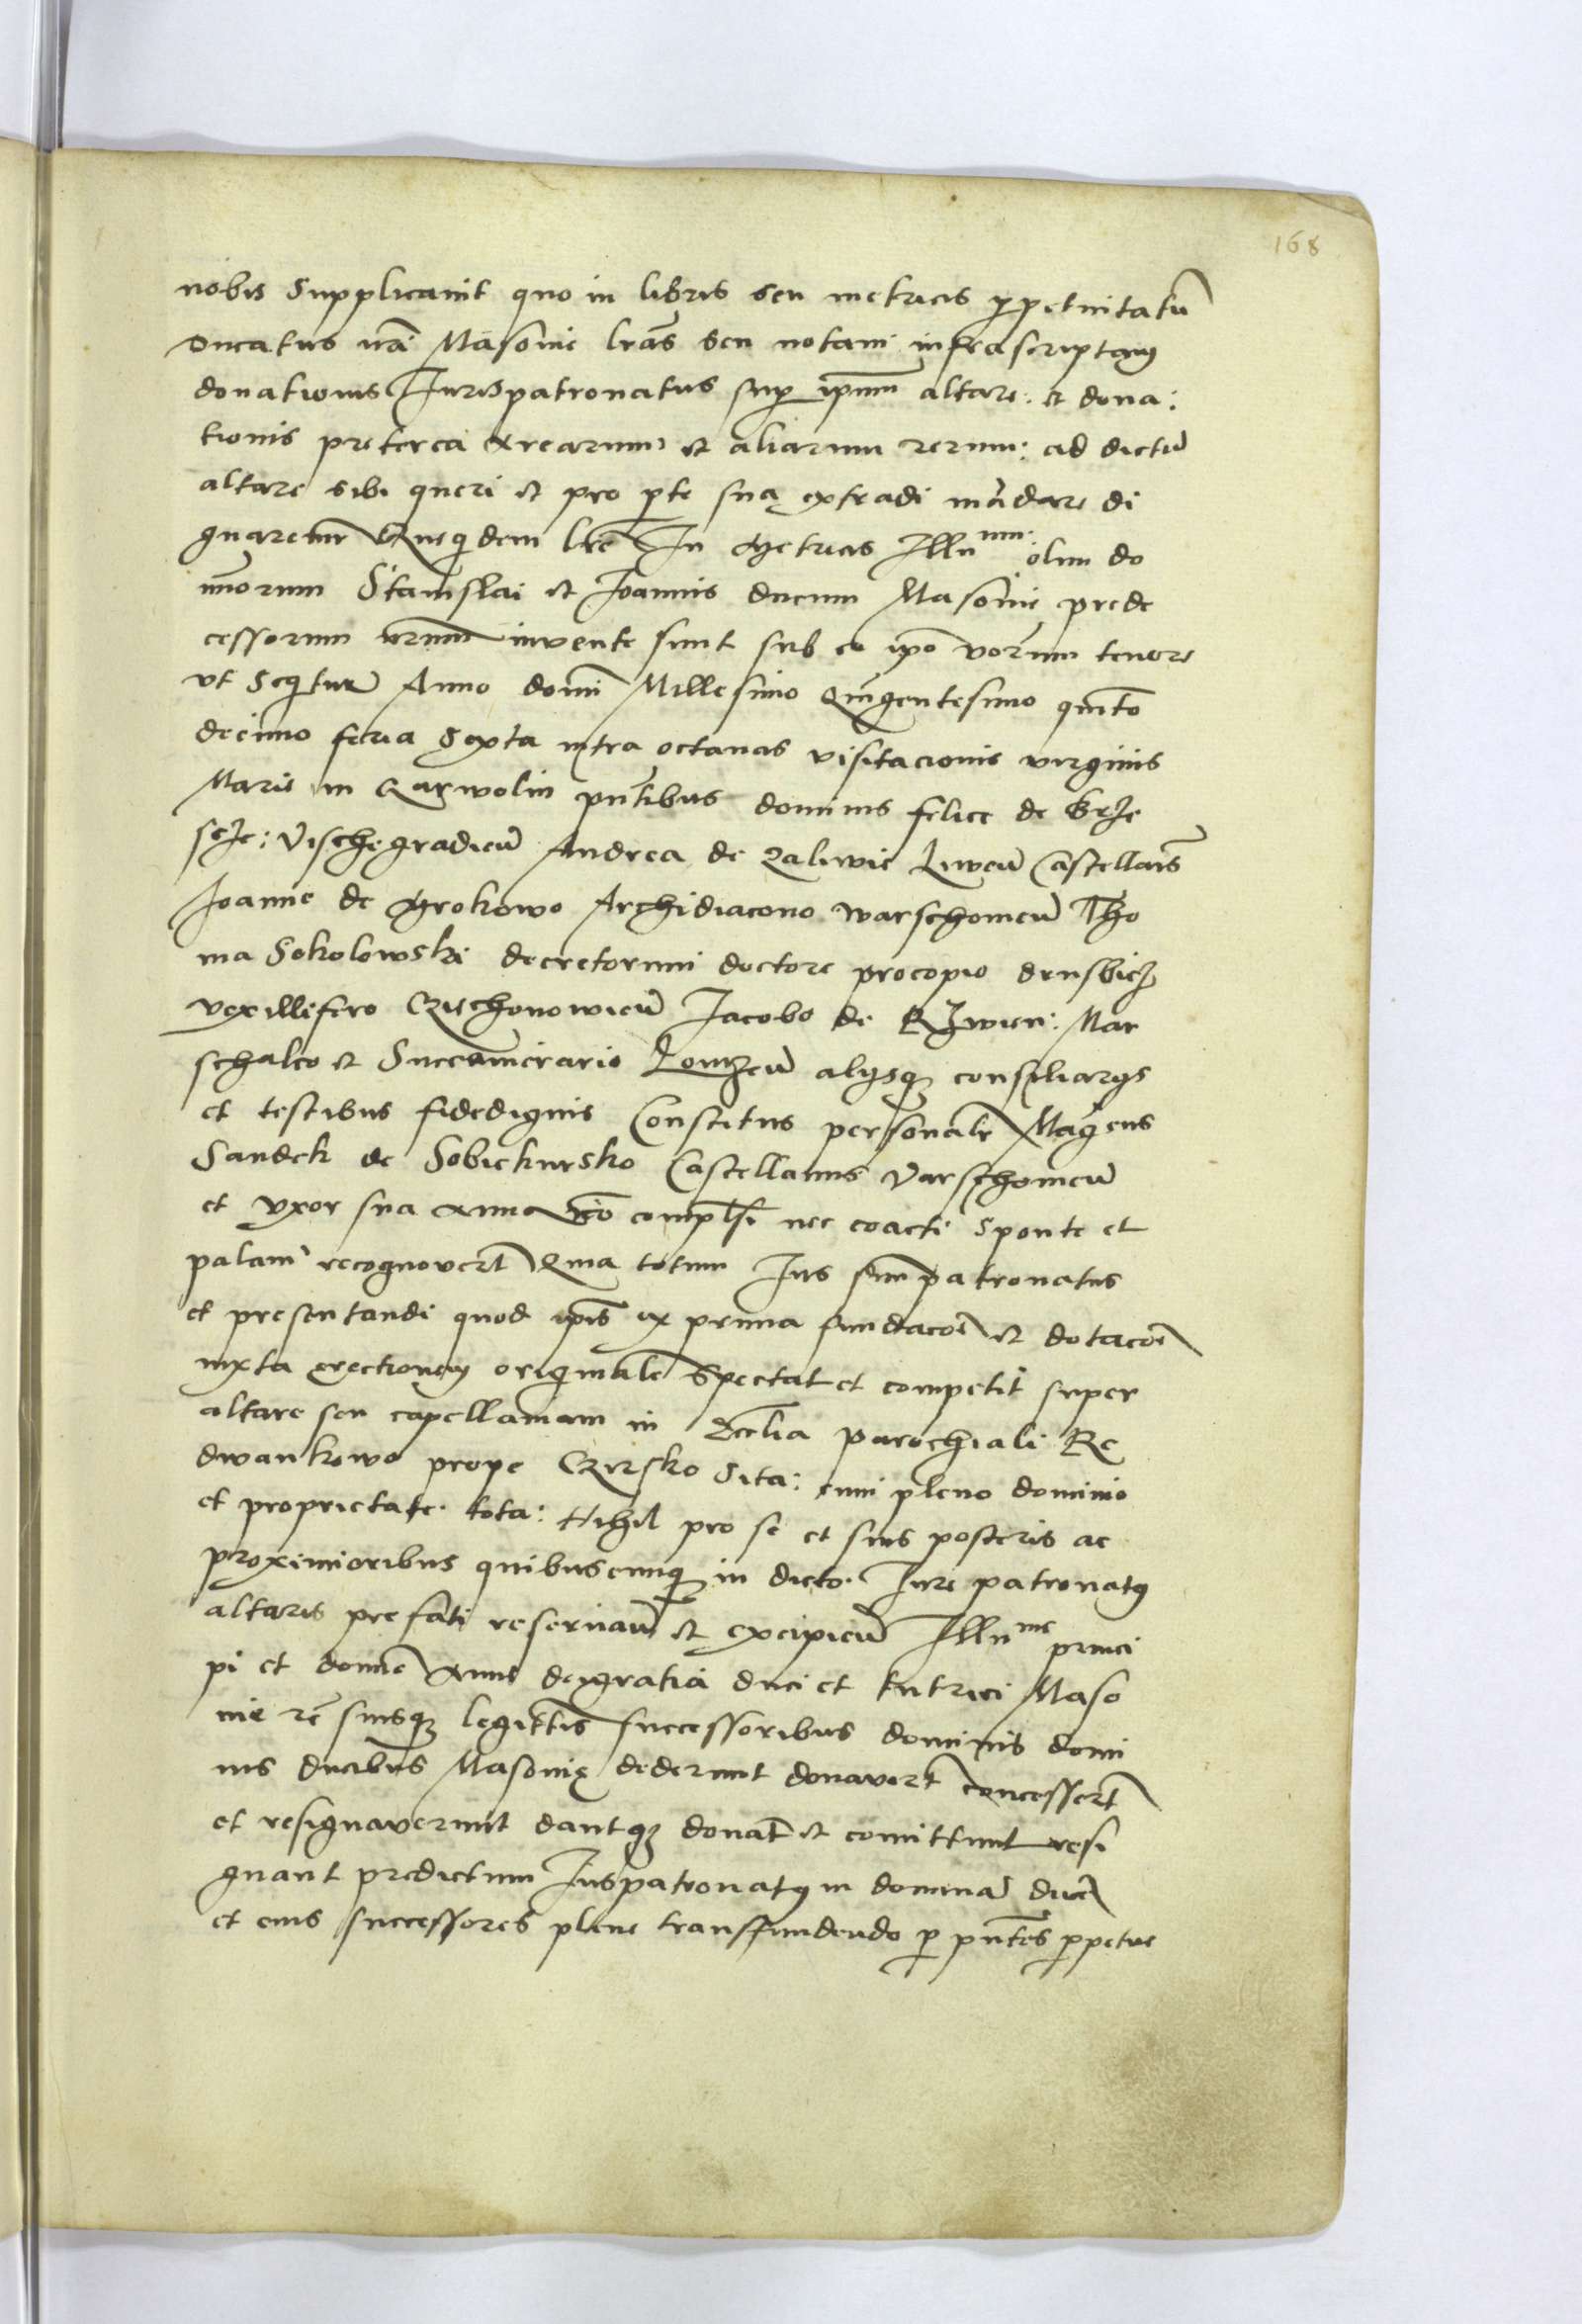 168
nobis supplicauit quo in libris seu metricis ꝑpetuitatū
ducatus nr̄i Masouie lr̄as seu notam infrascriptam
donationis Jurispatronatus suꝑ ip̄um altare: et dona:
tionis preterea arearum et aliarum rerum: ad dictū
altare sibi queri et pro ꝑte sua extradi mādare di
gnaremur Quequidem lr̄e In Metricis Illu^mm: olim do
minorum Stanislai et Joannis ducum Masouie prede
cessorum nr̄orum invente sunt sub eo ip̄o verborum tenore
vt sequitur Anno domī Millesimo Quīgentesimo quīto
decimo feria sexta intra octauas visitacionis virginis
Marie in Garwolin pn̄tibus dominis felice de Brze
scze: Vischegradien̄ Andrea de Zaliwie Liwen̄ Castellan̄s
Joanne de Grokowo Archidiacono warschouien̄ Tho
ma Sokolowski decretorum doctore procopio drusbicz
vexillifero Czechonowien̄ Jacobo de Kzwien: Mar
schalco et Succamerario Lomzen̄ alijsqꝫ consiliarijs
et testibus fidedignis Constitus personalr̄ Mag̈cus
Sandek de Sobiekursko Castellanus Varschouien̄
et vxor sua anna nō compulsi nec coacti sponte et
palam recognovert̄ Quia totum Jus suum patronatus
et presentandi quod ip̄is ex prima fundacoē et dotacoē
iuxta erectionem originale spectat et competit super
altare seu capellaniam in Ecclia parochiali Re
dwankowo prope Czirsko sita: cum pleno dominio
et proprietate tota: Nihil pro se et suis posteris ac
proximioribus quibuscumqꝫ in dicto Jure patronatꝰ
altaris prefati reseruan̄ et excipien̄ Illu^me princi
pi et domne Anne deygratia duci et tutrici Maso
uie rc̄ suisqꝫ legittis successoribus dominis domi
nis ducibus Masouię dederunt donavert̄ concessert̄
et resignaverunt dantqꝫ donāt et comittunt resi
gnant predictum Juspatronatꝰ in dominā ducē
et eius successores plene transfundendo ꝑ pn̄tes ꝑpetue